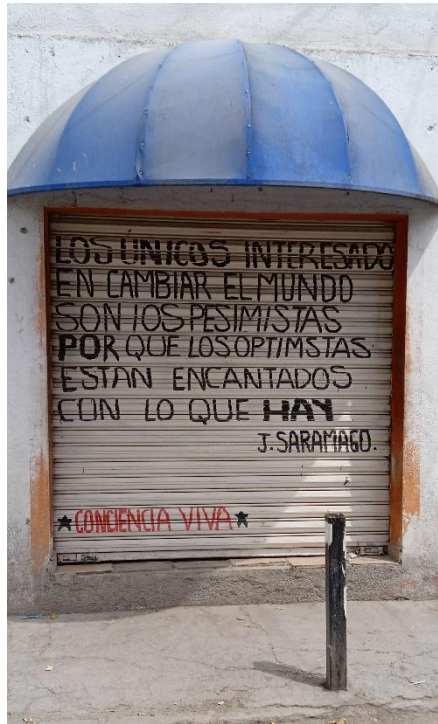 LOS UNICOS INTERESADO
EN CAMBIAR EL MUNDO
SON lOS PESIMISTAS
POR QUE LOS OPTIMSTAS
ESTAN ENCANTADOS
CON LO QUE HAY
J. SARAMAGO.
★CONCIENCIA VIVA★